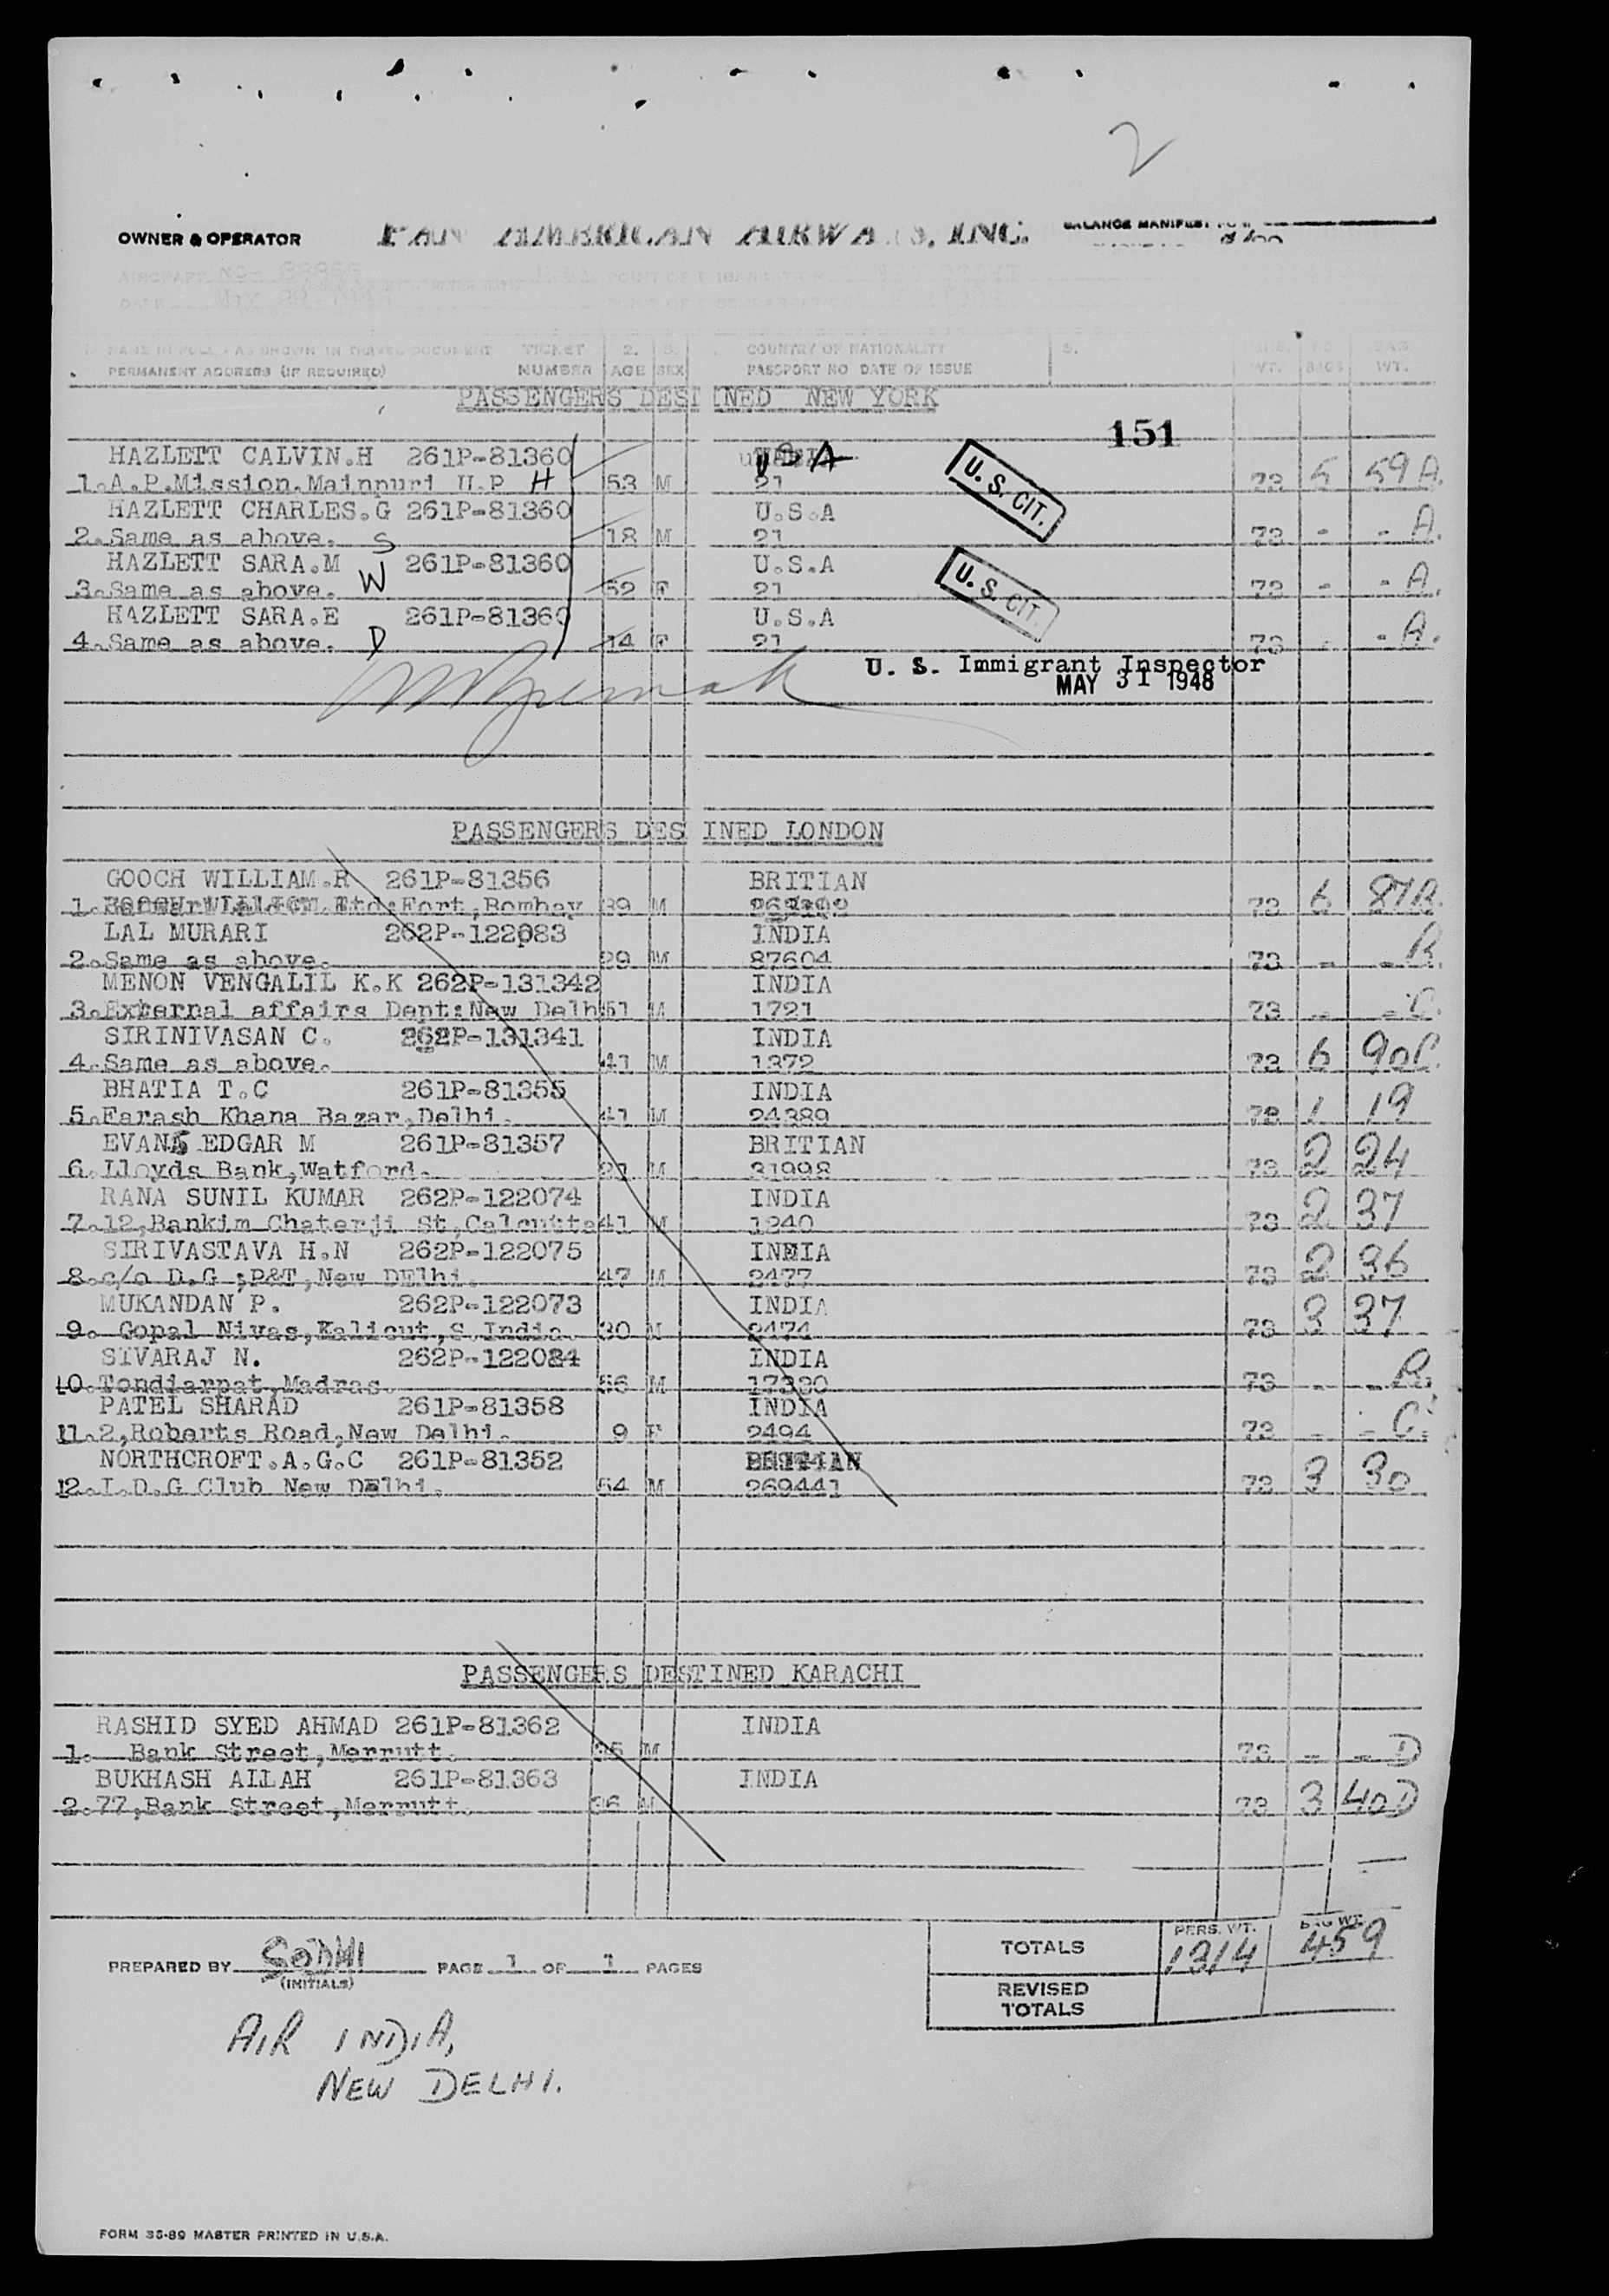 2
OWNER & OPERATOR PAN AMERICAN AIRWAYS, INC. BALANCE MANIFEST
AIRCRAFT NO
DATE
NAME IN FULL - AS SHOWN IN TRAVEL DOCUMENT TICKET 2. 3. COUNTRY OF NATIONALITY 5. BAG
PERMANENT ADDRESS (IF REQUIRED) NUMBER AGE SEX PASSPORT NO DATE OF ISSUE WT. BAGS WT.
PASSENGERS DESTINED NEW YORK
151
HAZLETT CALVIN.H 261P-81360 USA U. S. CIT.
1.A.P.Mission.Mainpuri U.P H 53 M 21 73 5 59 A.
HAZLETT CHARLES.G 261P-81360 U.S.A
2.Same as above. S 18 M 21 73 - - A.
HAZLETT SARA.M 261P-81360 U.S.A U. S. CIT.
3.Same as above. W 52 F 21 73 - - A.
HAZLETT SARA.E 261P-81360 U.S.A
4.Same as above. D 14 F 21 73 - - A.
U. S. Immigrant Inspector
MAY 31 1948
PASSENGERS DESTINED LONDON
GOOCH WILLIAM.R 261P-81356 BRITIAN
1. Ltd:Fort,Bombay 39 M 73 6 87B.
LAL MURARI 262P-122083 INDIA
2.Same as above. 29 M 87604 73 - - B.
MENON VENGALIL K.K 262P-131342 INDIA
3.External affairs Dept:New Delh 51 M 1721 73 - - C.
SIRINIVASAN C. 262P-131341 INDIA
4.Same as above. 41 M 1372 73 6 90C.
BHATIA T.C 261P-81355 INDIA
5.Farash Khana Bazar,Delhi. 41 M 24389 73 1 19
EVANS EDGAR M 261P-81357 BRITIAN
6.Lloyds Bank,Watford. 21 M 31998 73 2 24
RANA SUNIL KUMAR 262P-122074 INDIA
7.12,Bankim Chaterji St,Calcutta 41 M 1240 73 2 37
SIRIVASTAVA H.N 262P-122075 INDIA
8.c/o D.G ;P&T,New DElhi. 47 M 2477 73 2 36
MUKANDAN P. 262P-122073 INDIA
9. Gopal Nivas,Kalicut,S.India. 30 M 2474 73 3 37
SIVARAJ N. 262P-122084 INDIA
10.Tondiarpat,Madras. 56 M 17330 73 - - B.
PATEL SHARAD 261P-81358 INDIA
11.2,Roberts Road,New Delhi. 9 F 2494 73 - - C.
NORTHCROFT.A.G.C 261P-81352 BRITIAN
12.I.D.G Club New Delhi. 54 M 269441 73 3 30
PASSENGERS DESTINED KARACHI
RASHID SYED AHMAD 261P-81362 INDIA
1. Bank Street,Merrutt. 35 M 73 - - D
BUKHASH ALLAH 261P-81363 INDIA
2.77,Bank Street,Merrutt. 36 M 73 3 40D
PERS. WT. BAG WT.
TOTALS 1314 459
PREPARED BY SODHI PAGE 1 OF 1 PAGES
(INITIALS)
REVISED
TOTALS
AIR INDIA,
NEW DELHI.
FORM 35-89 MASTER PRINTED IN U.S.A.